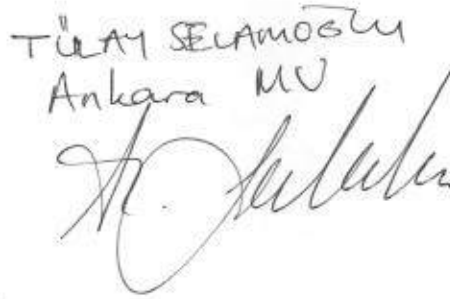 TÜLAY SELAMOĞLU
Ankara MV